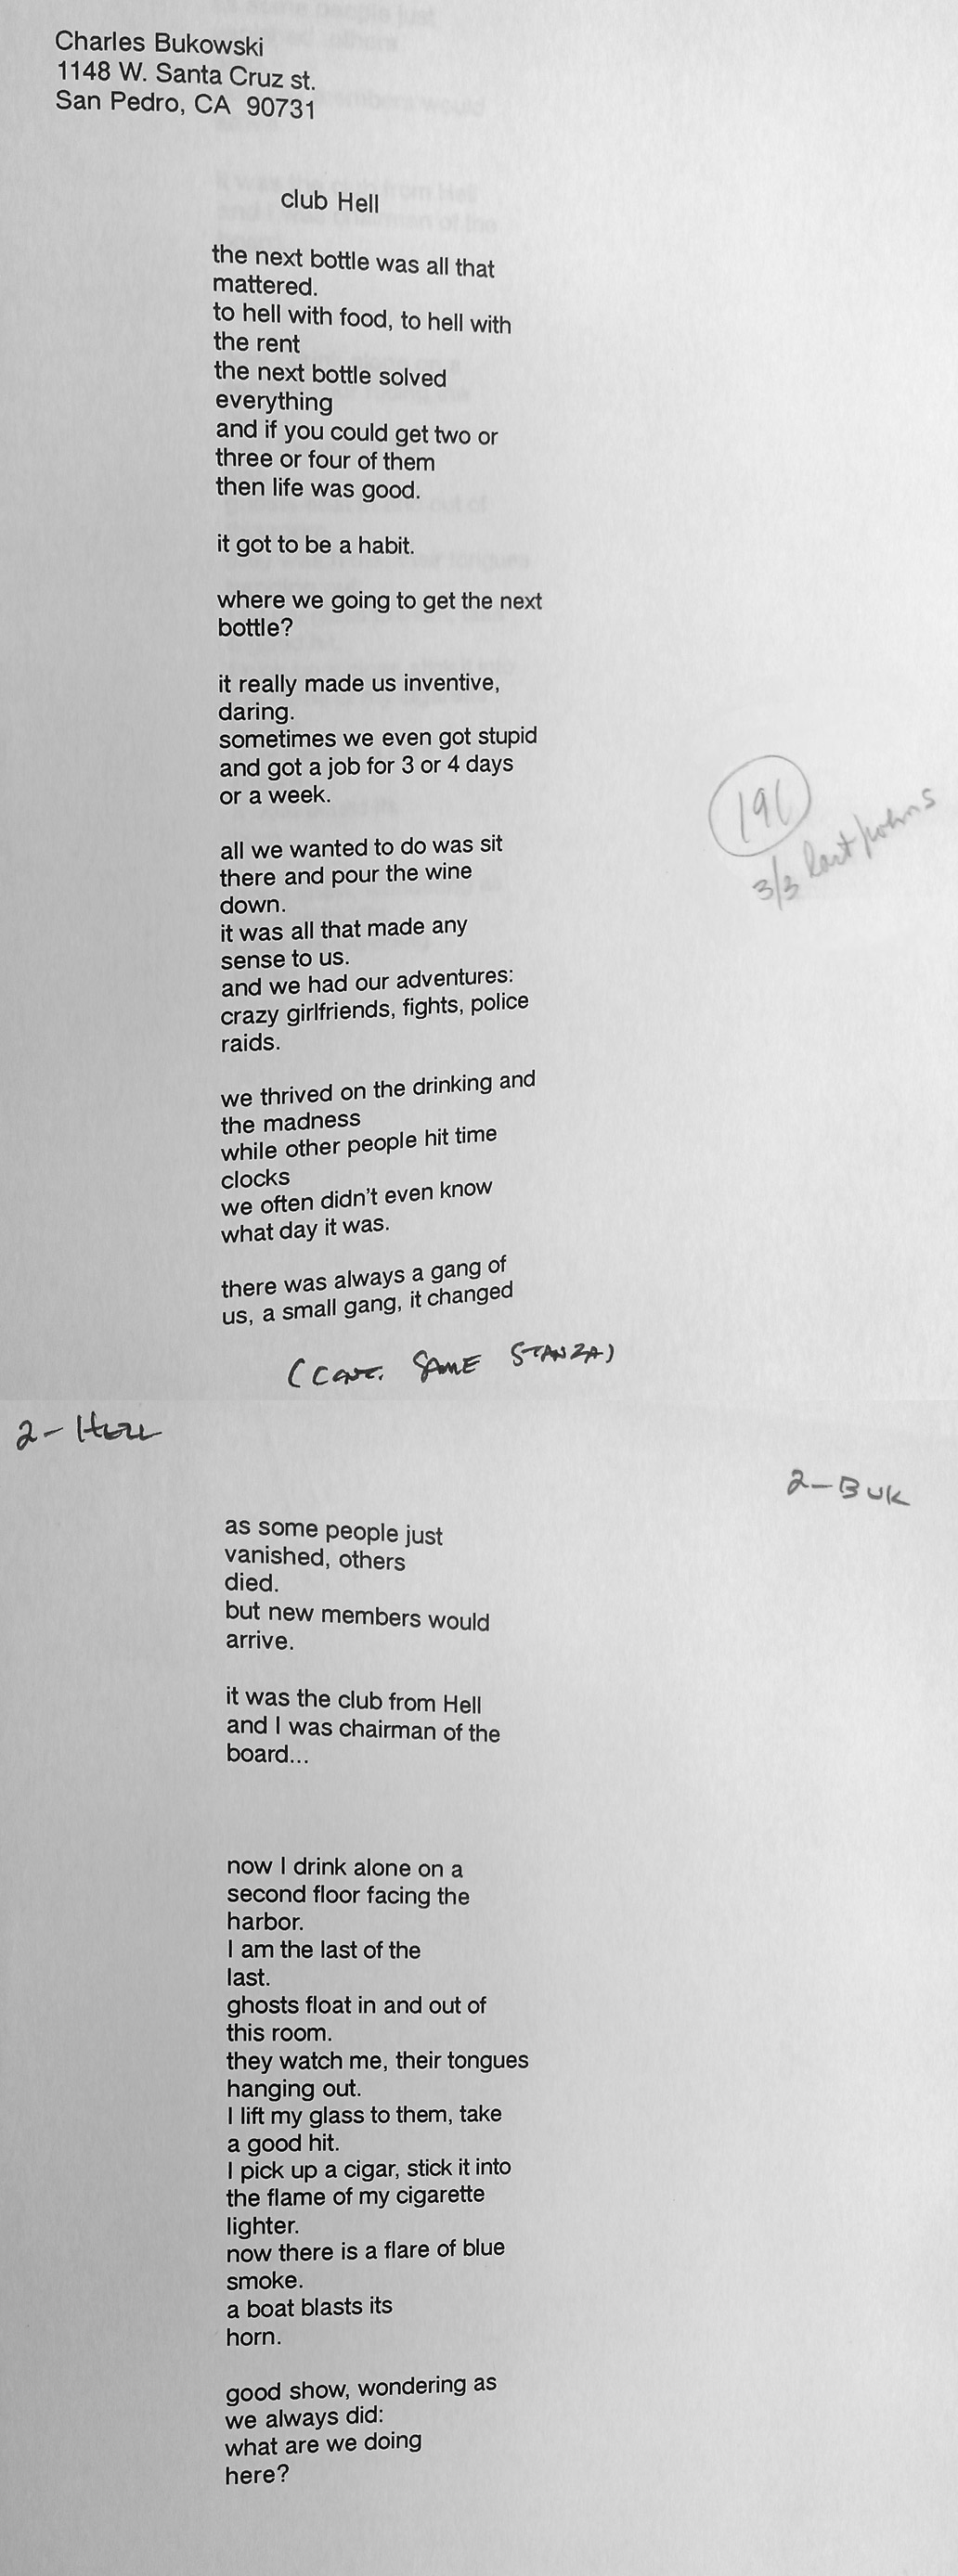 Charles Bukowski
1148 W. Santa Cruz st.
San Pedro, CA 90731
club Hell
the next bottle was all that
mattered.
to hell with food, to hell with
the rent
the next bottle solved
everything
and if you could get two or
three or four of them
then life was good.
it got to be a habit.
where we going to get the next
bottle?
it really made us inventive,
daring.
sometimes we even got stupid
and got a job for 3 or 4 days
or a week.
191
3/3 last poems
all we wanted to do was sit
there and pour the wine
down.
it was all that made any
sense to us.
and we had our adventures:
crazy girlfriends, fights, police
raids.
we thrived on the drinking and
the madness
while other people hit time
clocks
we often didn't even know
what day it was.
there was always a gang of
us, a small gang, it changed
(CONT. SAME STANZA)
2-HELL
2-BUK
as some people just
vanished, others
died.
but new members would
arrive.
it was the club from Hell
and I was chairman of the
board...
now I drink alone on a
second floor facing the
harbor.
I am the last of the
last.
ghosts float in and out of
this room.
they watch me, their tongues
hanging out.
I lift my glass to them, take
a good hit.
I pick up a cigar, stick it into
the flame of my cigarette
lighter.
now there is a flare of blue
smoke.
a boat blasts its
horn.
good show, wondering as
we always did:
what are we doing
here?